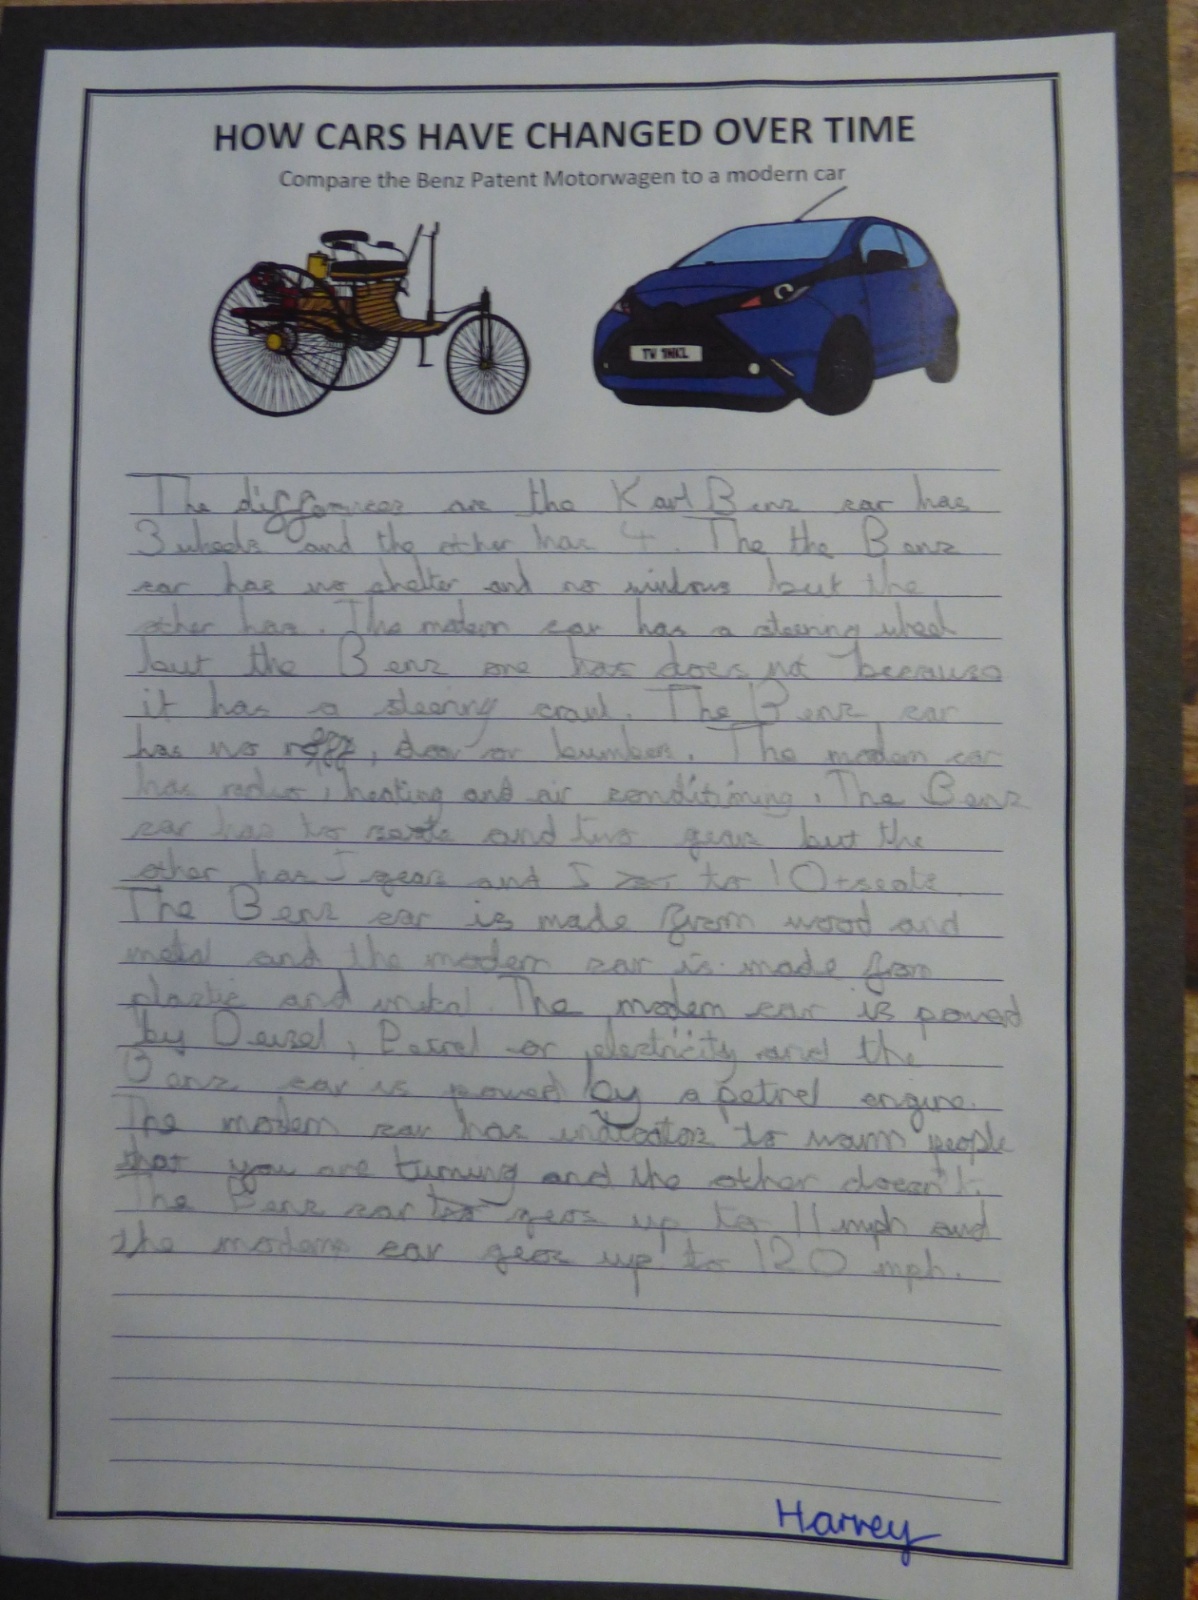 HOW CARS HAVE CHANGED OVER TIME
Compare the Benz Patent Motorwagen to a modern car
TV 1NKL
The differences are the Karl Benz car has
3 wheels and the other has 4. The the Benz
car has no shelter and no windows but the
other has. The modern car has a steering wheel
but the Benz one has does not because
it has a steering crank. The Benz car
has no roof, door or bumber. The modern car
has radio, heating and air conditining. The Benz
car has to seats and two gears but the
other has 5 gears and 5 to 10 + seats.
The Benz car is made from wood and
metal and the modern car is made from
plastic and metal. The modern car is powed
by Deisel, Petrel or electricity and the
Benz car is powed by a petrel engine.
The modern car has indicators to warn people
that you are turning and the other doesn't.
The Benz car goes up to 11 mph and
the modern car goes up to 120 mph.
Harvey